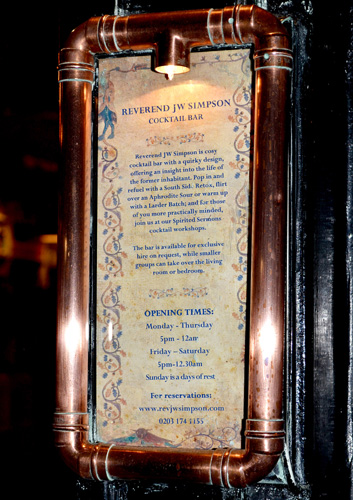 REVEREND JW SIMPSON
COCKTAIL BAR
Reverend JW Simpson is cosy
cocktail bar with a quirky design,
offering an insight into the life of
the former inhabitant. Pop in and
refuel with a South Side Retox, flirt
over an Aphrodite Sour or warm up
with a Larder Batch; and for those
of you more practically minded,
join us at our Spirited Sermons
cocktail workshops.
The bar is available for exclusive
hire on request, while smaller
groups can take over the living
room or bedroom.
OPENING TIMES:
Monday - Thursday
5pm - 12am
Friday – Saturday
5pm-12.30am
Sunday is a days of rest
For reservations:
www.revjwsimpson.com
0203 174 1155